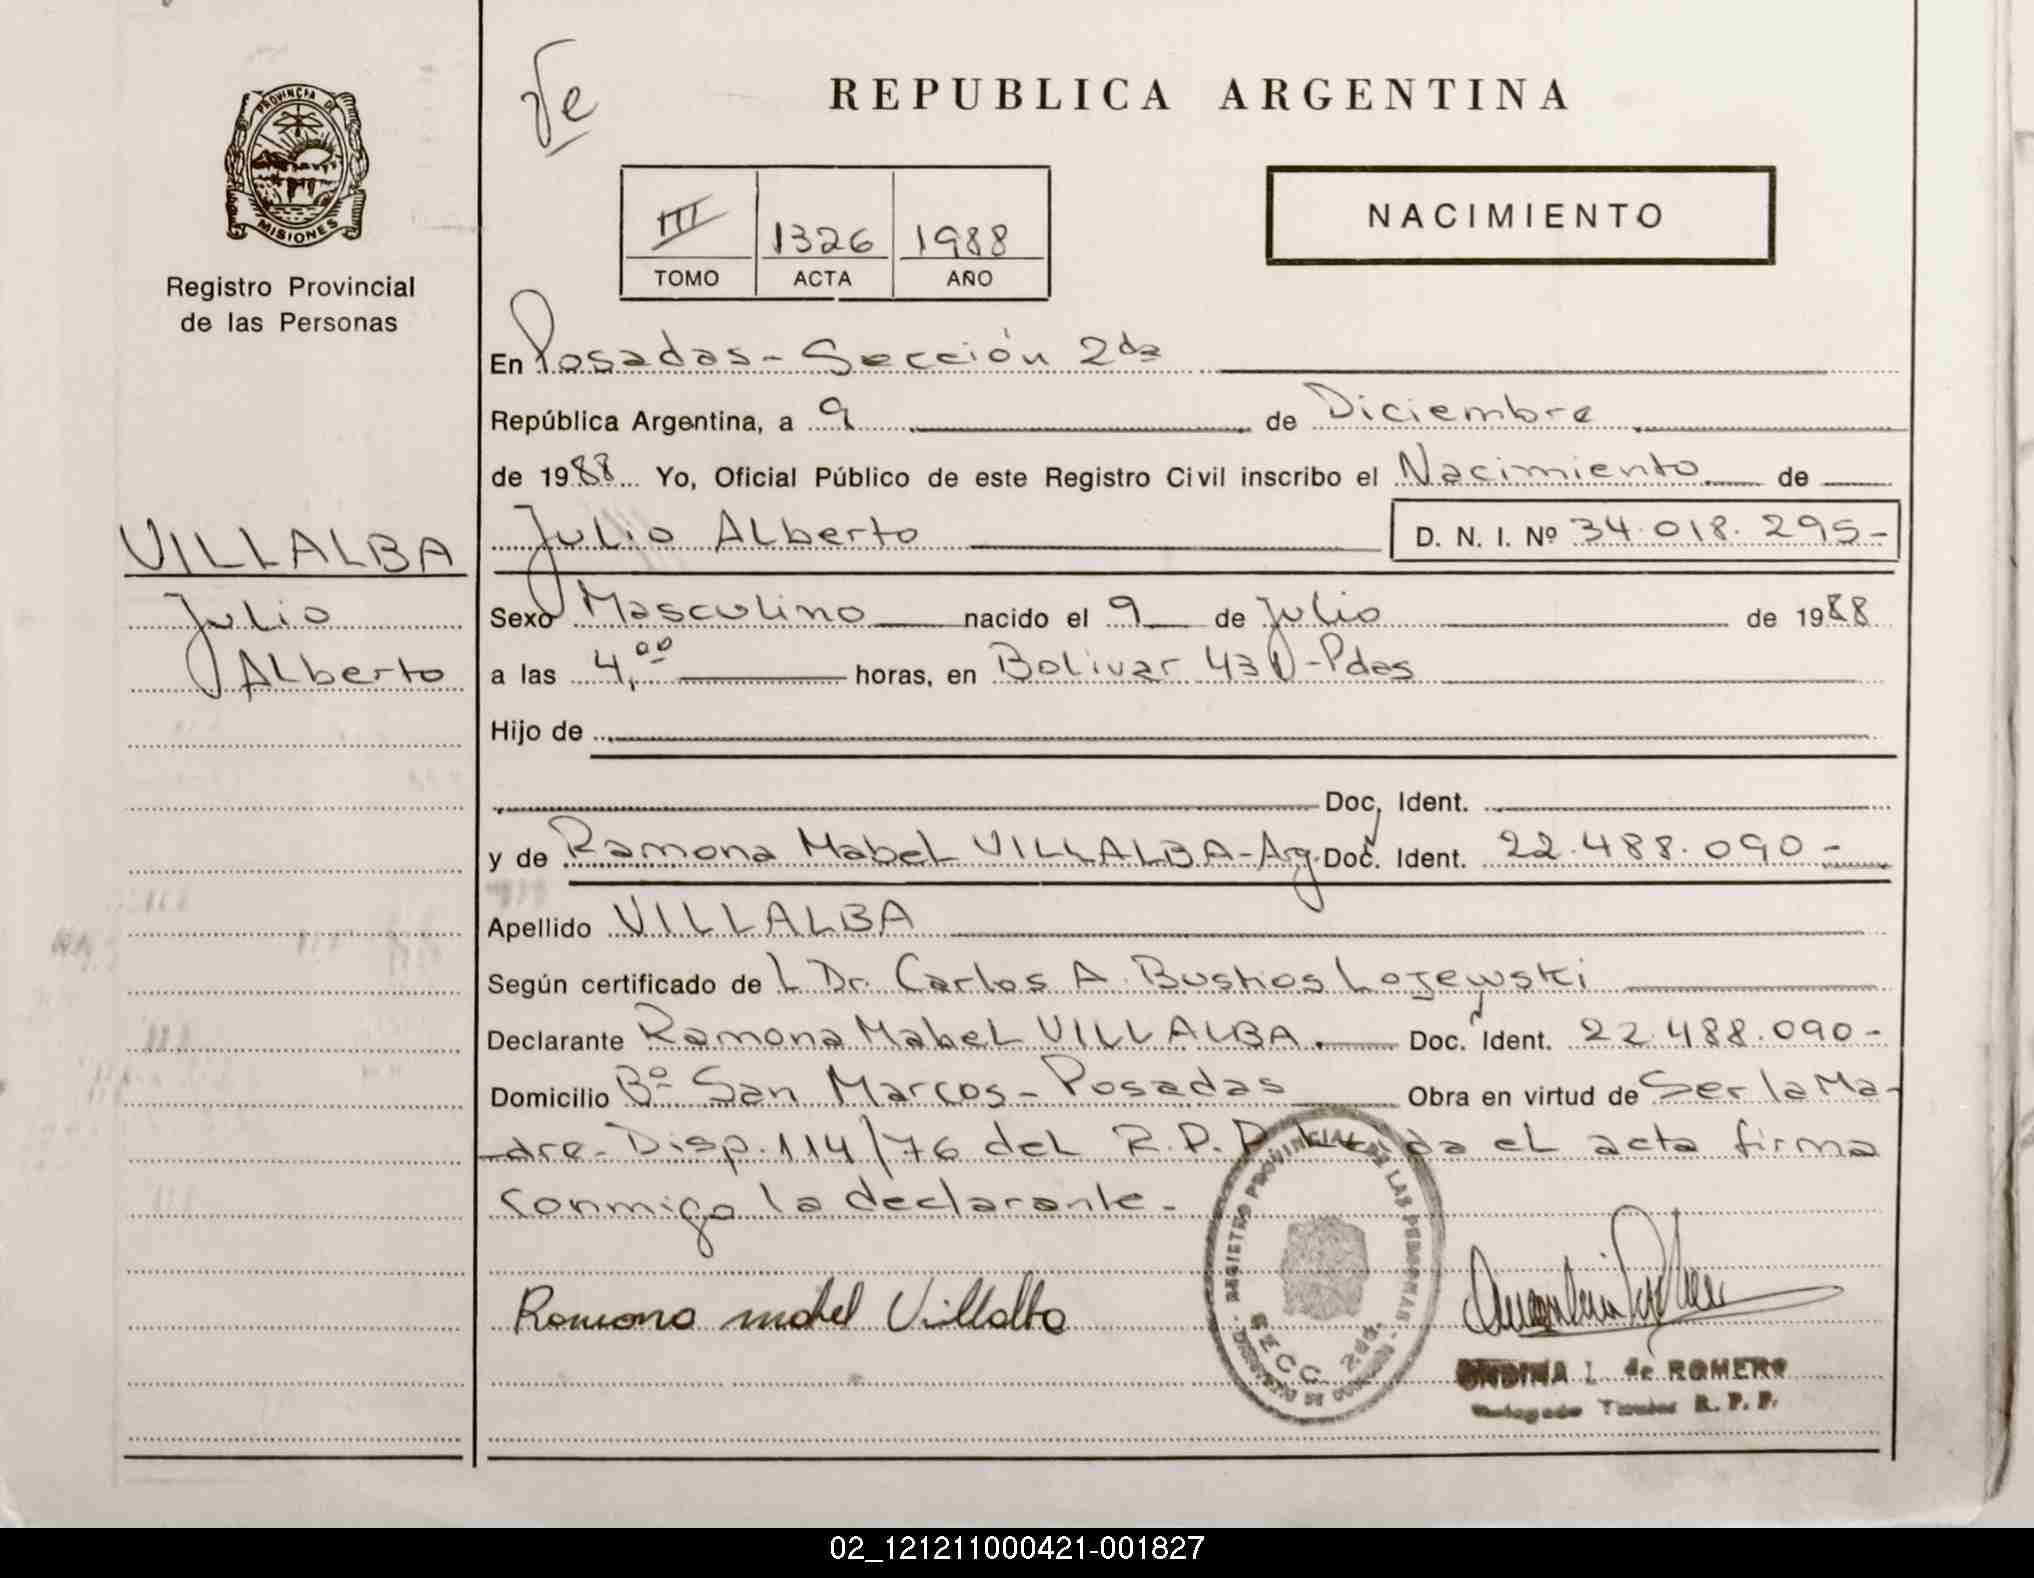 PROVINCIA DE
MISIONES
Registro Provincial
de las Personas
VILLALBA
Julio
Alberto
REPUBLICA ARGENTINA
III 1326 1988
TOMO ACTA AÑO
NACIMIENTO
En Posadas - Sección 2da
República Argentina, a 9 de Diciembre
de 1988 Yo, Oficial Público de este Registro Civil inscribo el Nacimiento de
Julio Alberto D. N. I. Nº 34.018.295-
Sexo Masculino nacido el 9 de Julio de 1988
a las 4,00 horas, en Bolivar - Pdas
Hijo de
Doc. Ident.
y de Ramona Mabel VILLALBA - Arg. Doc. Ident. 22.488.090-
Apellido VILLALBA
Según certificado de L Dr. Carlos A. Bustos Lojewski
Declarante Ramona Mabel VILLALBA. Doc. Ident. 22.488.090-
Domicilio Bº San Marcos - Posadas Obra en virtud de Ser la Ma-
dre - Disp. 114/76 del R.P.P. el acta firma
conmigo la declarante.-
Ramona mabel Villalba
REGISTRO PROVINCIAL DE LAS PERSONAS
SECC. 2da.
ONDINA I. de ROMERO
R. P. P.
02_121211000421-001827